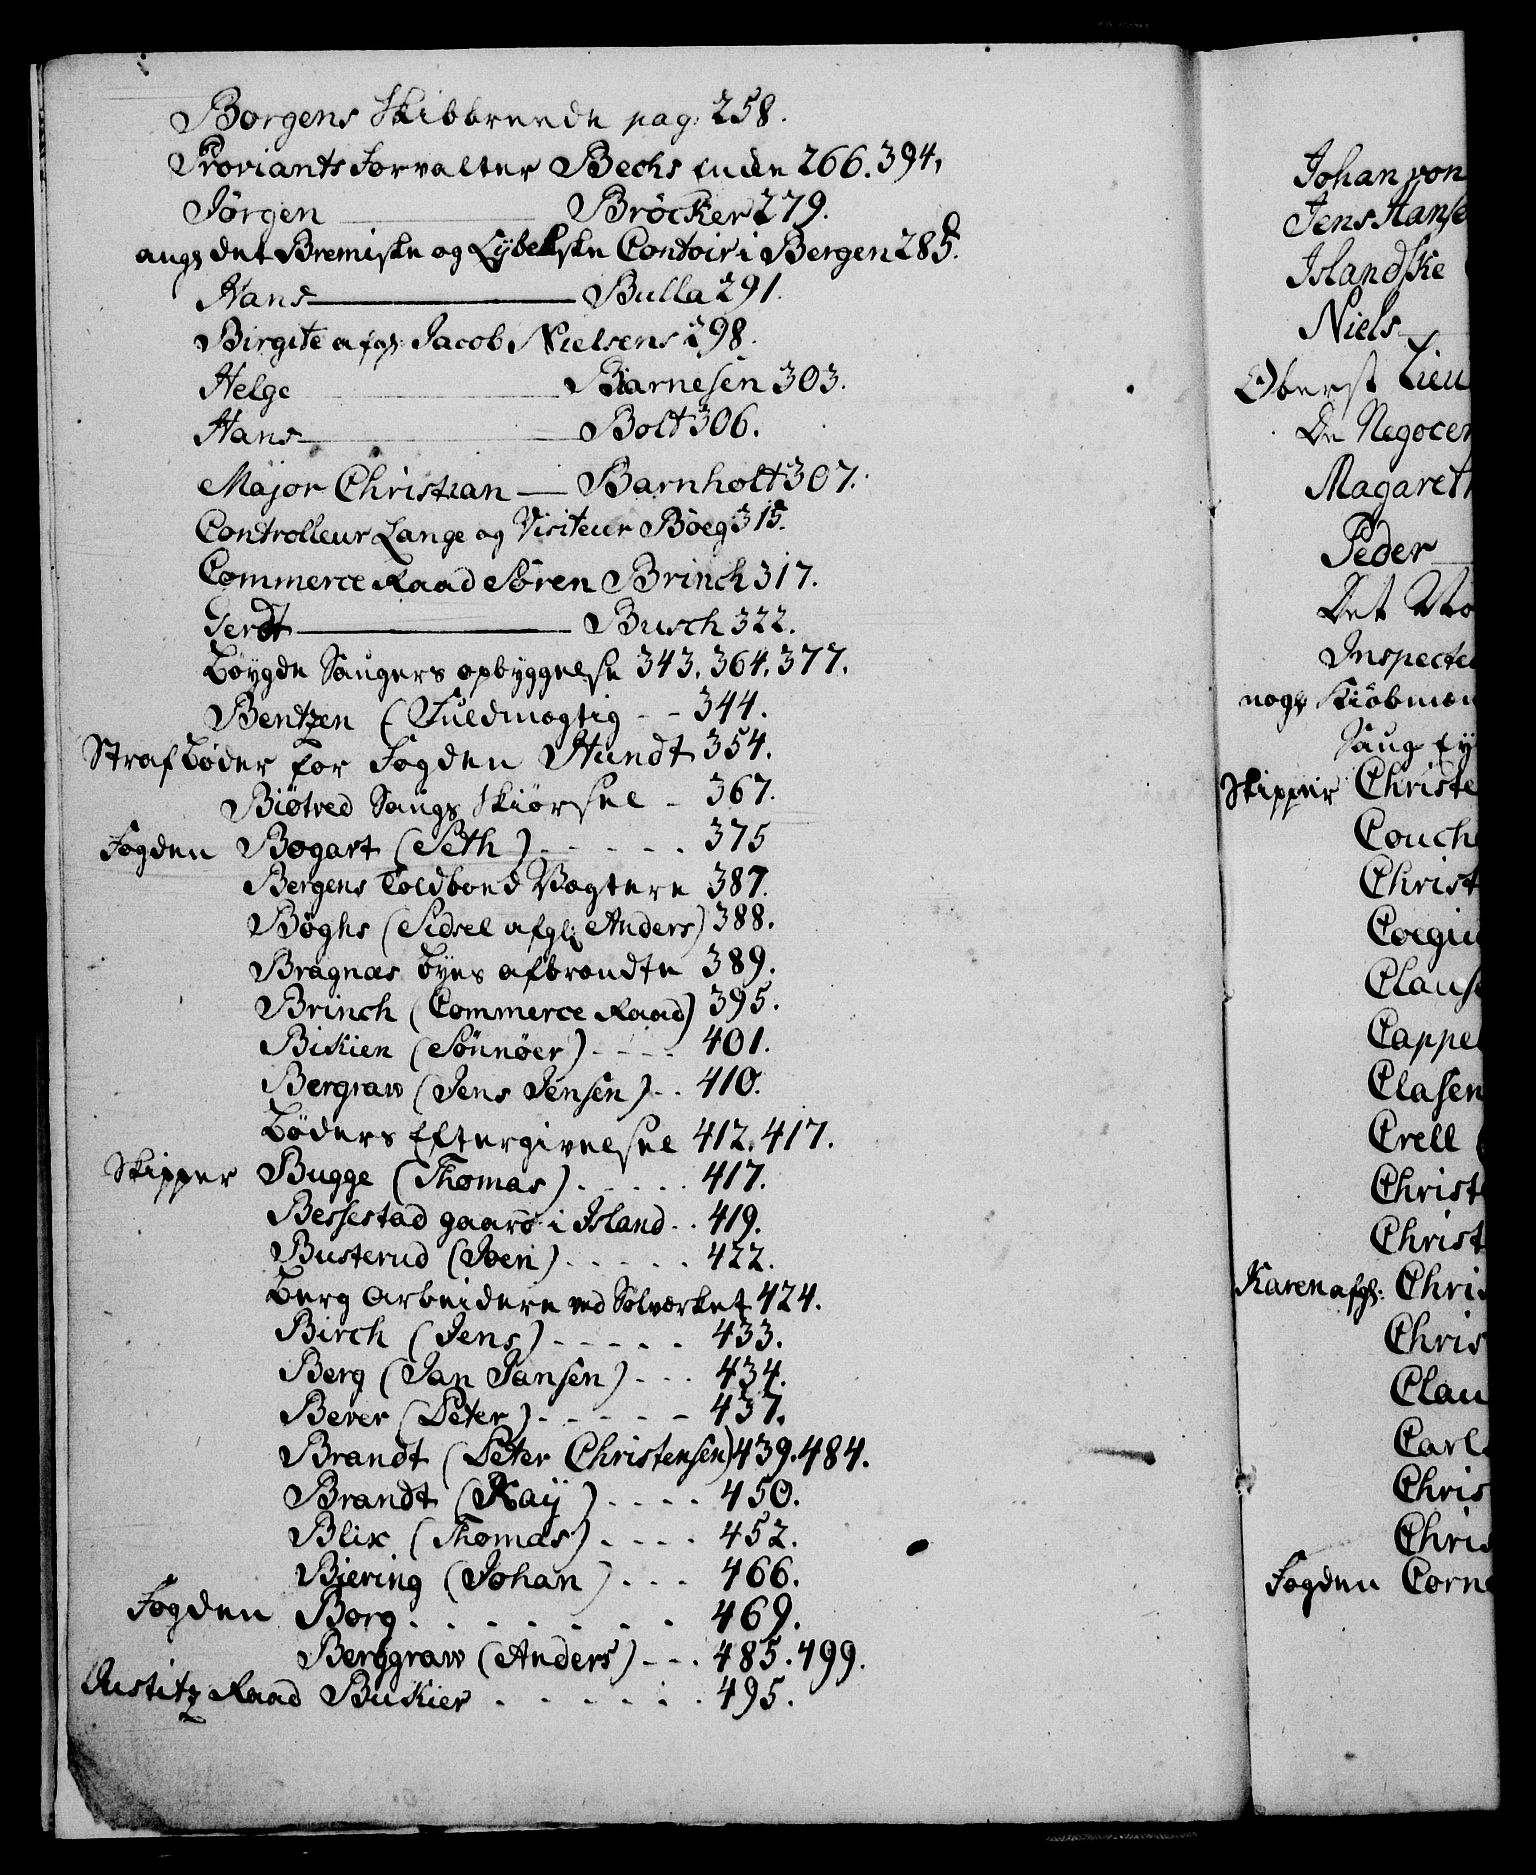 Borgens Skibbreede pag: 258.
Proviants Forvalter Bechs Encke 266. 394.
Jørgen ——— Bröcker 279.
angl det Bremiske og Lybekske Contoir i Bergen 285.
Hans ——— Bulla 291.
Birgite afgl: Jacob Nielsens 298.
Helge ——— Biarnesen 303.
Hans ——— Bolt 306.
Major Christian — Barnholt 307.
Controlleur Lange og Visiteur Böeg 315.
Commerce Raad Sören Brinch 317.
Gerdt ——— Busch 322.
Böygde Saugers opbyggelse 343. 364. 377.
Bentzen (Fuldmægtig - - 344.
Straf Bøder for Fogden Hundt 354.
Biötved Saugs Skiörsel - 367.
Fogden Bogart (Seth) - - - - - 375
Bergens Toldboed Vægtere 387.
Bøghs (Sidsel afgl: Anders) 388.
Bragnæs Byes afbrændte 389.
Brinch (Commerce Raad) 395.
Bikien (Sönnöer) - - - - 401.
Bergraw (Jens Jensen) - - 410.
Bøders Eftergivelsel 412. 417.
Skipper Bugge (Thomas) - - - - - 417.
Bessestad gaard i Island - - 419.
Busterud (Joen) - - - - - 422.
Berg Arbeidere ved Sølværket 424.
Birch (Jens) - - - - - 433.
Berg (Jan Jansen) - - - 434.
Berer (Peter) - - - - - 437.
Brandt (Peter Christensen) 439. 484.
Brandt (Kay) - - - - 450.
Blix (Thomas) - - - - 452.
Biering (Johan) - - - 466.
Fogden Borg - - - - - - - 469.
Berggraw (Anders) - - - 485. 499.
Justitz Raad Bukier - - - - - - 495.
Johan von
Jens Hanse
Islandske
Niels
Oberst Lieu
De Negocer
Magareth
Peder
Det
Inspecte
nogl Kiöbmæn
Saug
Skipper Christe
Couch
Christ
Coegiu
Claus
Cappel
Clasen
Crell (
Christ
Christ
Karen afgl: Chris
Chris
Clau
Carl
Chris
Chris
Fogden Corne